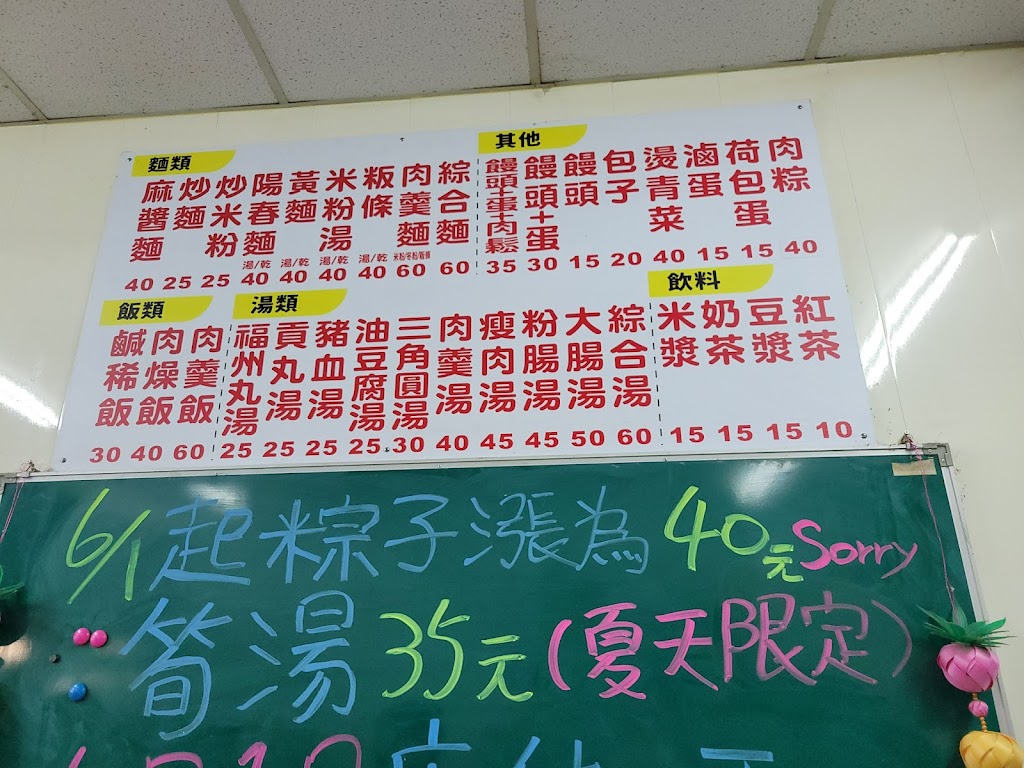 麵類
麻醬麵 40
炒麵 25
炒米粉 25
陽春麵 湯/乾 40
黃麵 湯/乾 40
米粉湯 湯/乾 40
粄條 湯/乾 40
肉羹麵 60
綜合麵 60
其他
饅頭+蛋+肉鬆 35
饅頭+蛋 30
饅頭 15
包子 20
燙青菜 40
滷蛋 15
荷包蛋 15
肉粽 40
飯類
鹹稀飯 30
肉燥飯 40
肉羹飯 60
湯類
福州丸湯 25
貢丸湯 25
豬血湯 25
油豆腐湯 25
三角圓湯 30
肉羹湯 40
瘦肉湯 45
粉腸湯 45
大腸湯 50
綜合湯 60
飲料
米漿 15
奶茶 15
豆漿 15
紅茶 10
6/1起粽子漲為40元Sorry
筍湯35元(夏天限定)